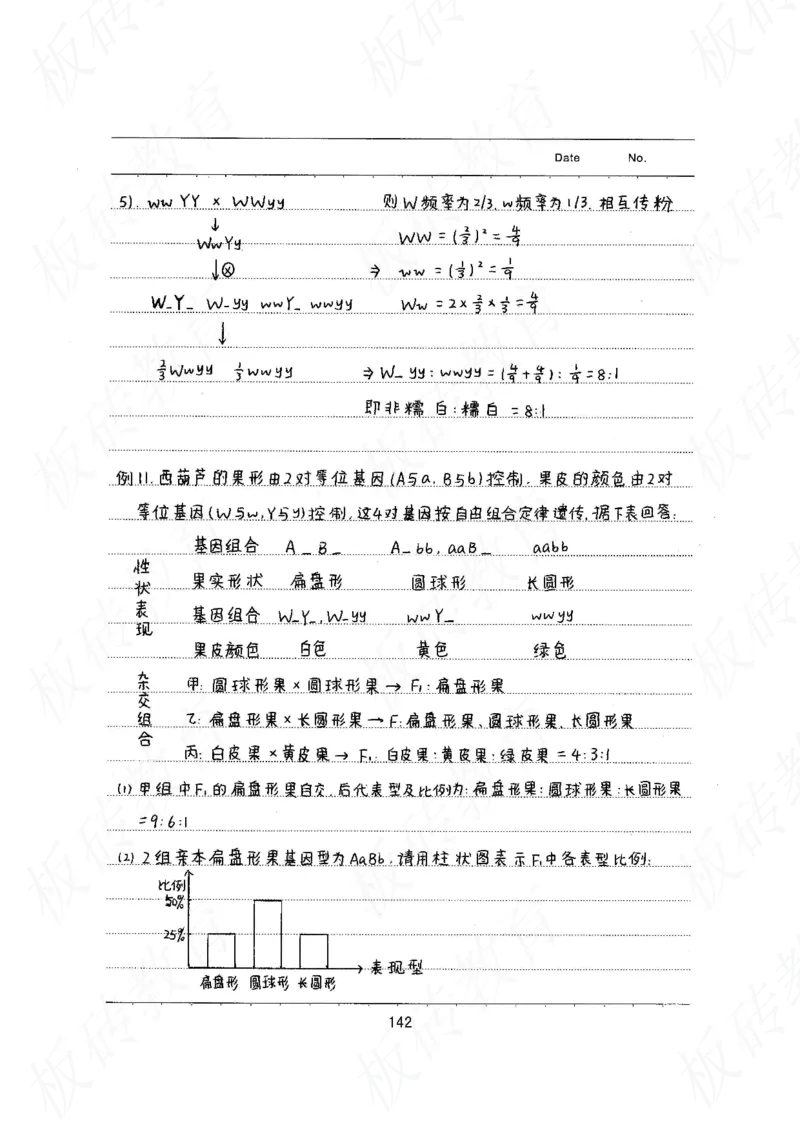 Date No.
5). wwYY × WWyy 则W频率为2/3, w频率为1/3, 相互传粉
↓
WwYy WW = (2/3)² = 4/9
↓⊗ ⇒ ww = (1/3)² = 1/9
W_Y_ W_yy wwY_ wwyy Ww = 2×2/3×1/3 = 4/9
↓
2/3Wwyy 1/3wwyy ⇒ W_yy : wwyy = (4/9+4/9) : 1/9 = 8:1
即非糯白:糯白 = 8:1
例11. 西葫芦的果形由2对等位基因(A与a, B与b)控制, 果皮的颜色由2对
等位基因(W与w, Y与y)控制, 这4对基因按自由组合定律遗传, 据下表回答:
性状表现
基因组合 A_B_ A_bb, aaB_ aabb
果实形状 扁盘形 圆球形 长圆形
基因组合 W_Y_, W_yy wwY_ wwyy
果皮颜色 白色 黄色 绿色
杂交组合
甲: 圆球形果×圆球形果→F₁: 扁盘形果
乙: 扁盘形果×长圆形果→F₁: 扁盘形果、圆球形果、长圆形果
丙: 白皮果×黄皮果→F₁: 白皮果:黄皮果:绿皮果 = 4:3:1
(1) 甲组中F₁的扁盘形果自交, 后代表型及比例为: 扁盘形果:圆球形果:长圆形果
=9:6:1
(2) 乙组亲本扁盘形果基因型为AaBb, 请用柱状图表示F₁中各表型比例:
比例
50%
25%
表现型
扁盘形 圆球形 长圆形
142
板砖教育